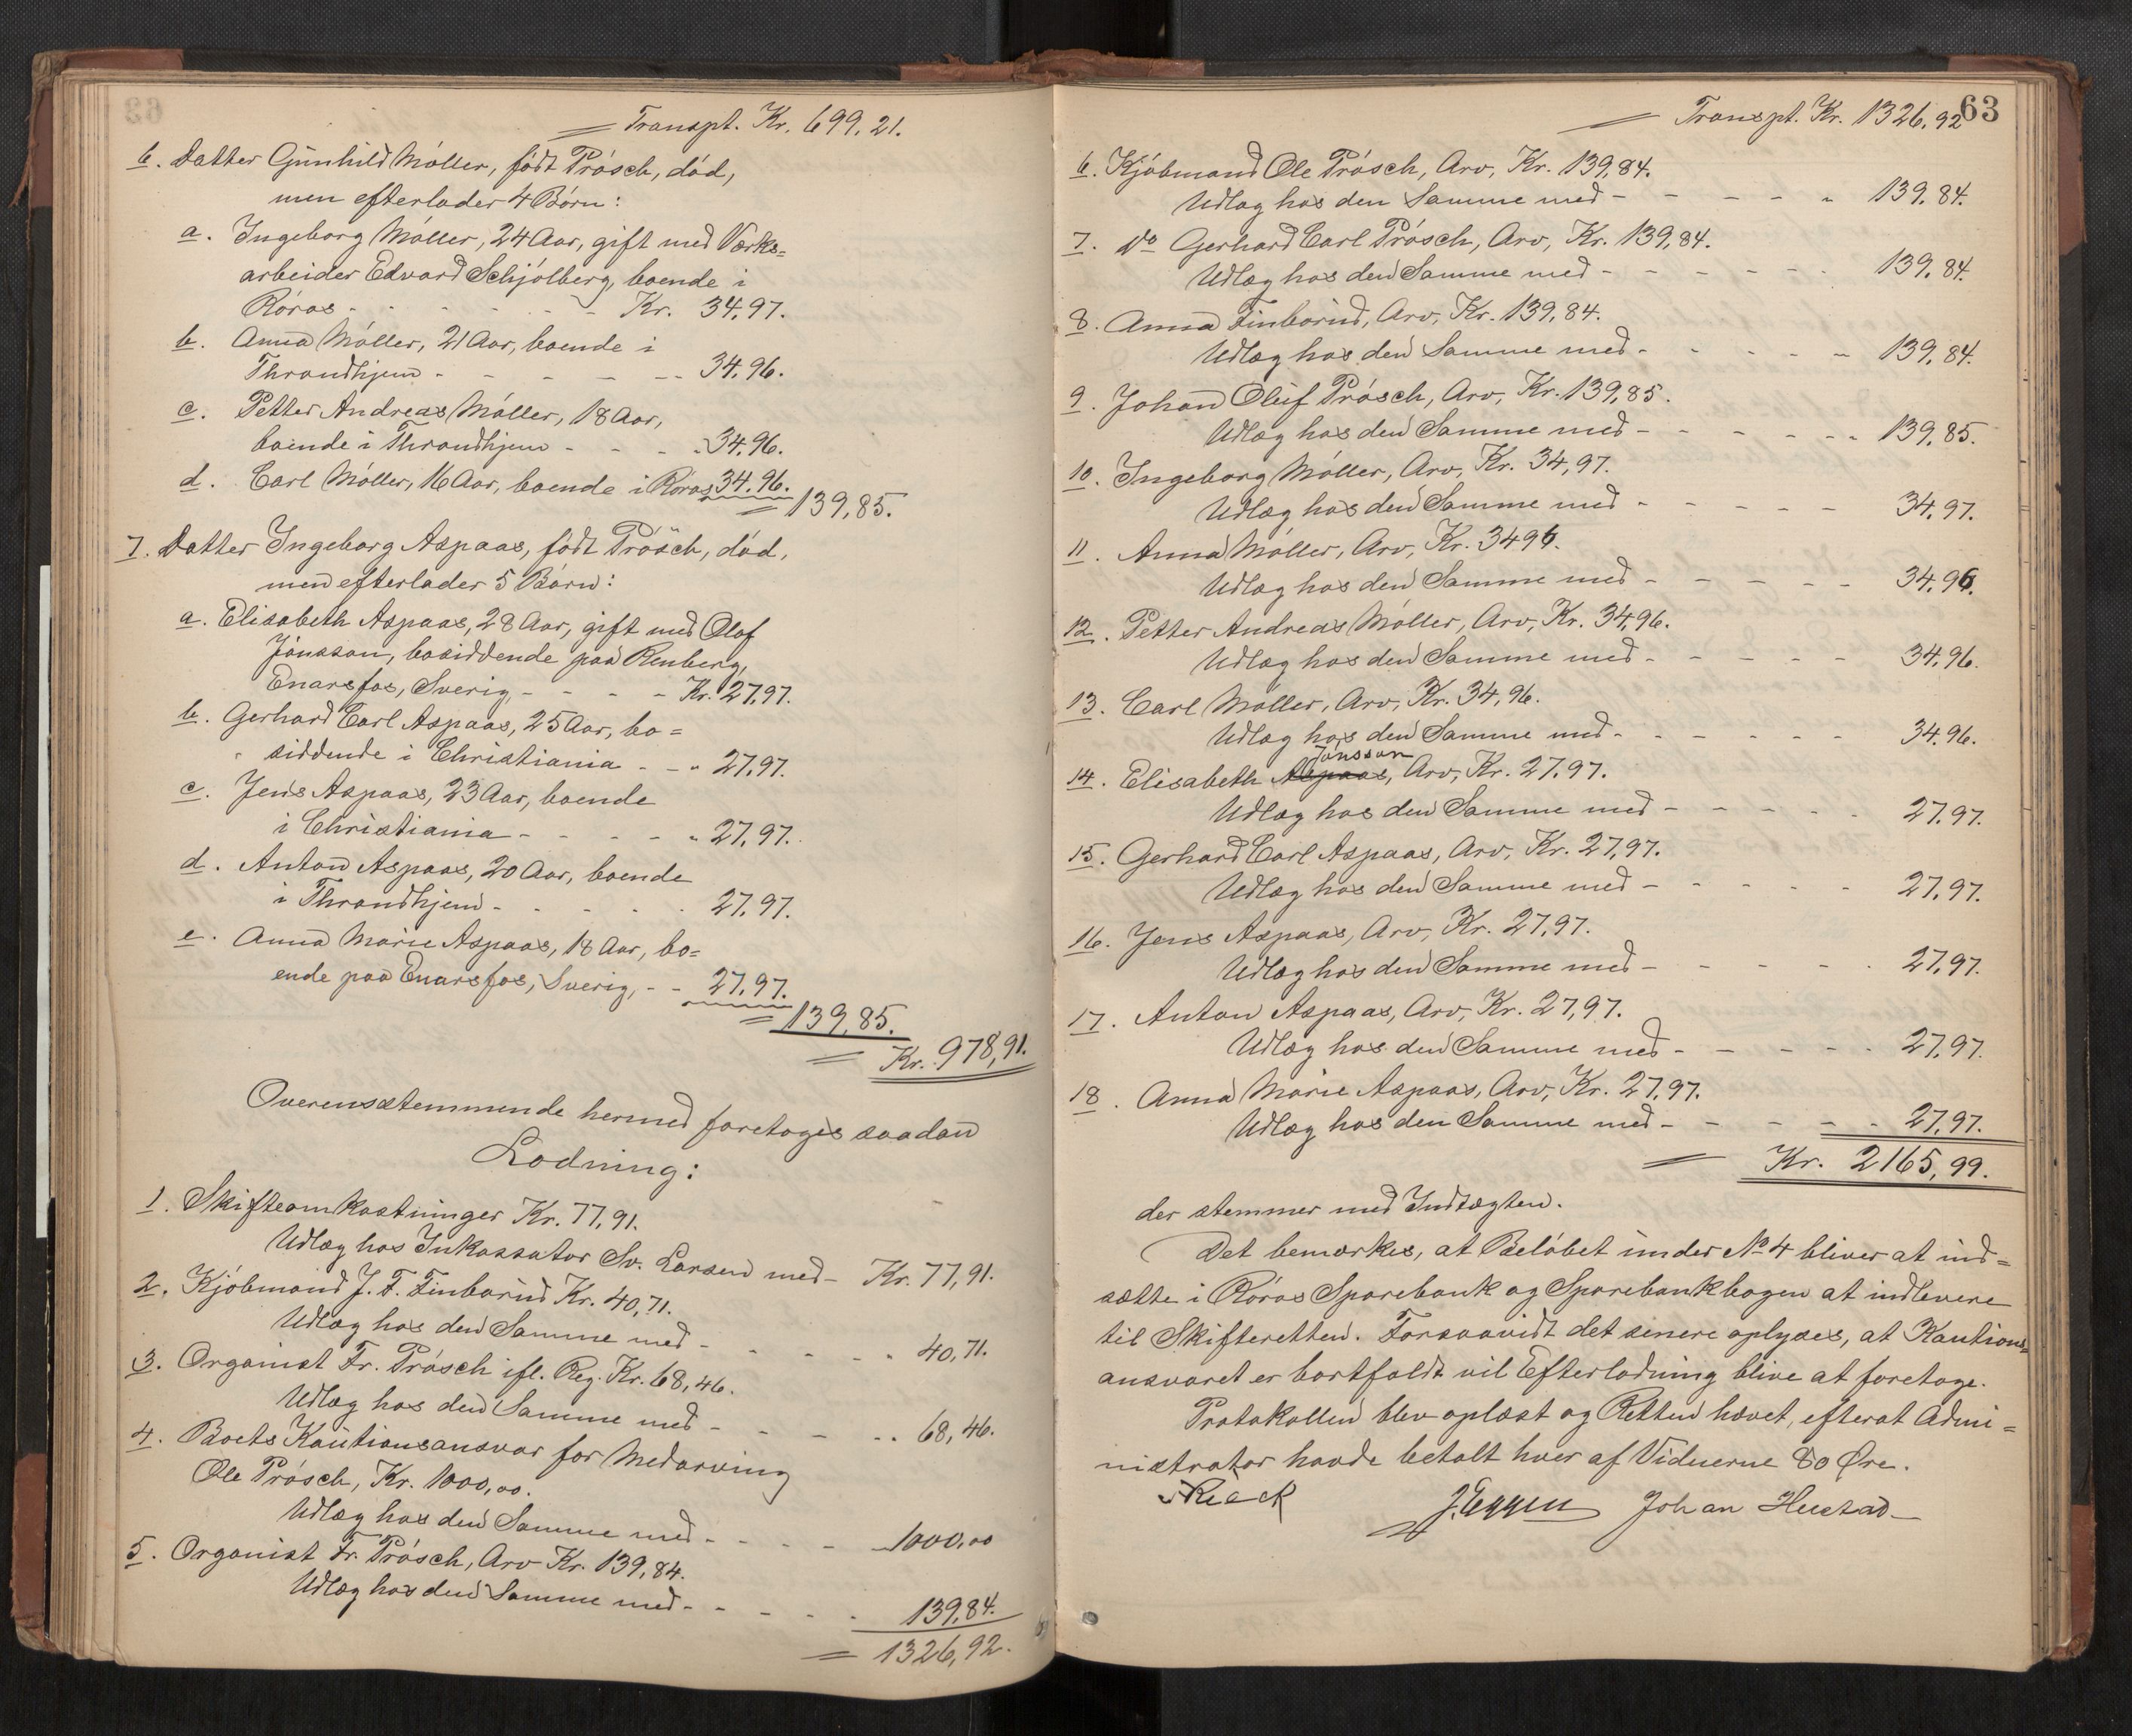 Transpt. Kr. 699,21.
6. Datter Gunhild Møller, født Prøsch, død,
men efterlader 4 Børn:
a. Ingeborg Møller, 24 Aar, gift med Værks=
arbeider Edvard Schjølberg, boende i
Røros - - - - - - Kr. 34,97.
b. Anna Møller, 21 Aar, boende i
Throndhjem - - - - - - 34,96.
c. Petter Andreas Møller, 18 Aar,
boende i Throndhjem - - - - 34,96.
d. Carl Møller, 16 Aar, boende i Røros 34,96.
= 139,85.
7. Datter Ingeborg Aspaas, født Prösch, død,
men efterlader 5 Børn:
a. Elisabeth Aspaas, 28 Aar, gift med Olof
Jönsson, bosiddende paa Renberg,
Enarsfos, Sverig, - - - - Kr. 27,97.
b. Gerhard Carl Aspaas, 25 Aar, bo=
siddende i Christiania - - " 27,97.
c. Jens Aspaas, 23 Aar, boende
i Christiania - - - - - " 27,97.
d. Anton Aspaas, 20 Aar, boende
i Throndhjem - - - - - 27,97.
e. Anna Marie Aspaas, 18 Aar, bo=
ende paa Enarsfos, Sverig, - - 27,97.
= 139,85.
= Kr. 978,91.
Overensstemmende hermed foretoges saadan
Lodning:
1. Skifteomkostninger Kr. 77,91.
Udlæg hos Inkassator Sv. Larsen med - Kr. 77,91.
2. Kjøbmand J. F. Finborud Kr. 40,71.
Udlæg hos den Samme med - - - - " 40,71.
3. Organist Fr. Prøsch ifl. Reg. Kr. 68,46.
Udlæg hos den Samme med - - - - " 68,46.
4. Boets Kautionsansvar for Medarving
Ole Prøsch, Kr. 1000,00.
Udlæg hos den Samme med - - - - - 1000,00
5. Organist Fr. Prøsch, Arv Kr. 139,84.
Udlæg hos den Samme med - - - - - 139,84.
= 1326,92.
63
Transpt. Kr. 1326,92
6. Kjøbmand Ole Prøsch, Arv, Kr. 139,84.
Udlæg hos den Samme med - - - - - " 139,84.
7. Do Gerhard Carl Prøsch, Arv, Kr. 139,84.
Udlæg hos den Samme med - - - - - - 139,84.
8. Anna Finborud, Arv, Kr. 139,84.
Udlæg hos den Samme med - - - - - " 139,84.
9. Johan Oluf Prøsch, Arv, Kr. 139,85.
Udlæg hos den Samme med - - - - - " 139,85.
10. Ingeborg Møller, Arv, Kr. 34,97.
Udlæg hos den Samme med - - - - - 34,97.
11. Anna Møller, Arv, Kr. 3496.
Udlæg hos den Samme med - - - - - 34,96.
12. Petter Andreas Møller, Arv, Kr. 34,96.
Udlæg hos den Samme med - - - - - 34,96.
13. Carl Møller, Arv, Kr. 34,96.
Udlæg hos den Samme med - - - - - - 34,96.
Jönsson
14. Elisabeth Aspaas, Arv, Kr. 27,97.
Udlæg hos den Samme med - - - - - 27,97.
15. Gerhard Carl Aspaas, Arv, Kr. 27,97.
Udlæg hos den Samme med - - - - - 27,97.
16. Jens Aspaas, Arv, Kr. 27,97.
Udlæg hos den Samme med - - - - - . 27,97.
17. Anton Aspaas, Arv, Kr. 27,97.
Udlæg hos den Samme med - - - - - - 27,97.
18. Anna Marie Aspaas, Arv, Kr. 27,97.
Udlæg hos den Samme med - - - - - - 27,97.
= Kr. 2165,99.
der stemmer med Indtægten.
Det bemærkes, at Beløbet under No 4 bliver at ind=
sætte i Røros Sparebank og Sparebankbogen at indlevere
til Skifteretten. Forsaavidt det senere oplyses, at Kautions=
ansvaret er bortfaldt vil Efterlodning blive at foretage.
Protokollen blev oplæst og Retten hævet, efterat Admi=
nistrator havde betalt hver af Vidnerne 80 Øre.
Rieck J. Eggen Johan Hustad